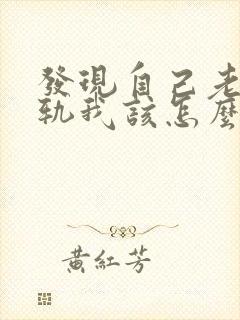 發現自己老
軌我該怎麼
黃紅芳